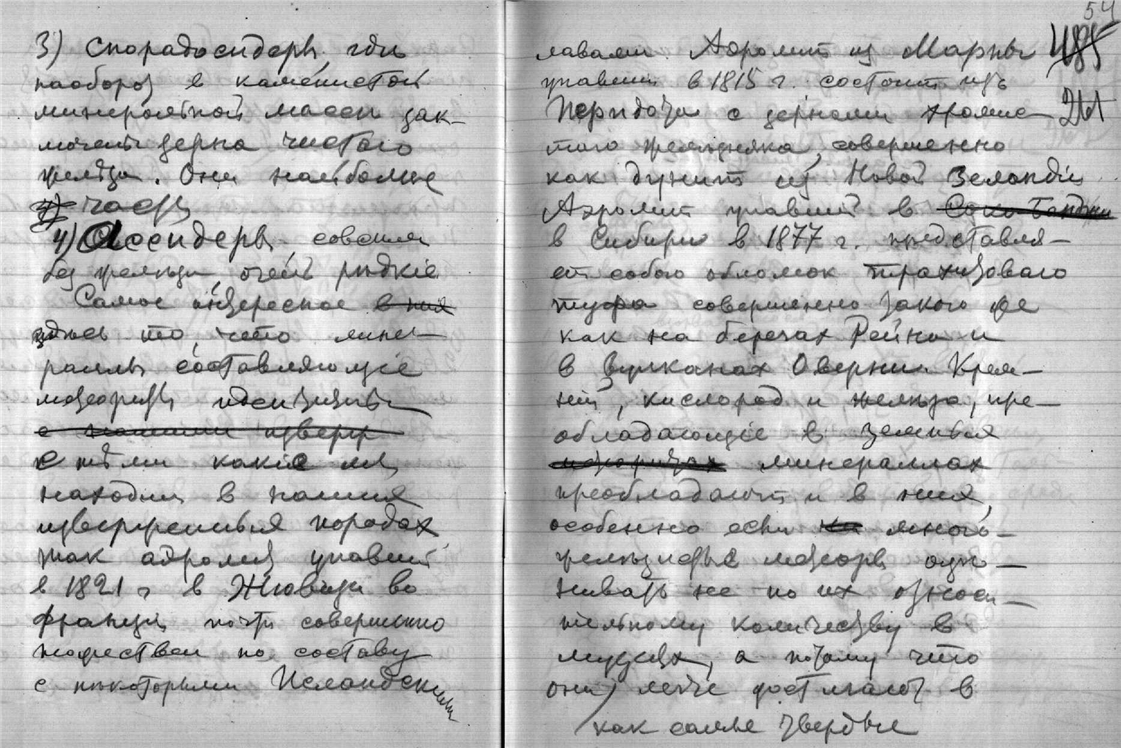 3) Спорадосидеры где
наоборот в каменистой
минеральной массе зак-
лючены зерна чистого
железа. Они наиболее
4) часты
4) Асидеры совсем
без железа очень редкие
Самое интересное в них
здесь то, что мине-
ралы составляющие
метеориты идентичны
с нашими изверж
с теми какие мы
находим в наших
изверженных породах
так аэролит упавший
в 1821 г в Жювиза во
Франции почти совершенно
тождествен по составу
с некоторыми Исландскими
54
485
261
лавами. Аэролит из Марны
упавший в 1815 г. состоит из
Перидота с зернами хромис-
того железняка, совершенно
как дунит из Новой Зеландии
Аэролит упавший в
в Сибири в 1877 г. представля-
ет собою обломок трахитоваго
туфа совершенно такого же
как на берегах Рейна и
в вулканах Оверни. Крем-
ний, кислород и железо, пре-
обладающие в земных
метеоритах минералах
преобладают и в них,
особенно если много
железистые метеоры оцѣ-
нивать не по их относи-
тельному количеству в
музеях, а потому что
они легче достигают в
как самые твердые